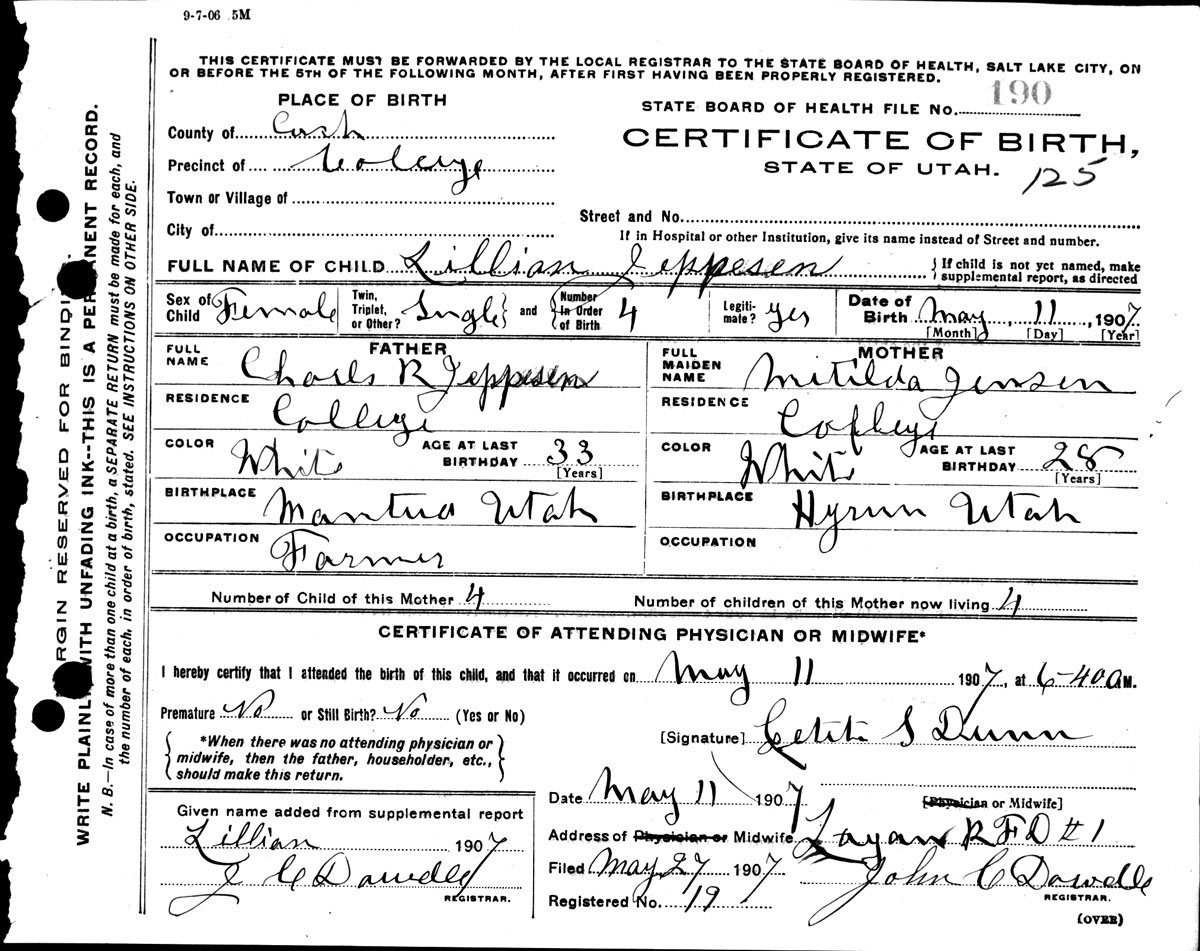 9-7-06 5M
THIS CERTIFICATE MUST BE FORWARDED BY THE LOCAL REGISTRAR TO THE STATE BOARD OF HEALTH, SALT LAKE CITY, ON
OR BEFORE THE 5TH OF THE FOLLOWING MONTH, AFTER FIRST HAVING BEEN PROPERLY REGISTERED.
PLACE OF BIRTH
STATE BOARD OF HEALTH FILE No. 190
County of Cash
CERTIFICATE OF BIRTH,
STATE OF UTAH.
125
Precinct of
Town or Village of
Street and No.
City of
If in Hospital or other Institution, give its name instead of Street and number.
FULL NAME OF CHILD Lillian Jeppesen { If child is not yet named, make
supplemental report, as directed
Sex of Child Female
Twin, Triplet, or Other? Single } and { Number in Order of Birth 4
Legitimate? yes
Date of Birth May 11, 1907
[Month] [Day] [Year]
FATHER
FULL NAME Charls R Jeppesen
RESIDENCE College
COLOR White AGE AT LAST BIRTHDAY 33
[Years]
BIRTHPLACE Mantua Utah
OCCUPATION Farmer
MOTHER
FULL MAIDEN NAME Mitilda Jensen
RESIDENCE
COLOR White AGE AT LAST BIRTHDAY 28
[Years]
BIRTHPLACE Hyrum Utah
OCCUPATION
Number of Child of this Mother 4
Number of children of this Mother now living 4
CERTIFICATE OF ATTENDING PHYSICIAN OR MIDWIFE*
I hereby certify that I attended the birth of this child, and that it occurred on May 11 1907, at 6-40 a M.
Premature No or Still Birth? No (Yes or No)
{ *When there was no attending physician or
midwife, then the father, householder, etc.,
should make this return. }
[Signature] S Dunn
Date May 11 1907
[Physician or Midwife]
Address of Physician or Midwife Logan R F D #1
Filed May 27 1907 John C Dowdle
REGISTRAR.
Registered No. 19
(OVER)
Given name added from supplemental report
Lillian 1907
J C Dowdle
REGISTRAR.
RGIN RESERVED FOR BINDI
WRITE PLAINLY WITH UNFADING INK--THIS IS A PERMANENT RECORD.
N. B.—In case of more than one child at a birth, a SEPARATE RETURN must be made for each, and
the number of each, in order of birth, stated. SEE INSTRUCTIONS ON OTHER SIDE.